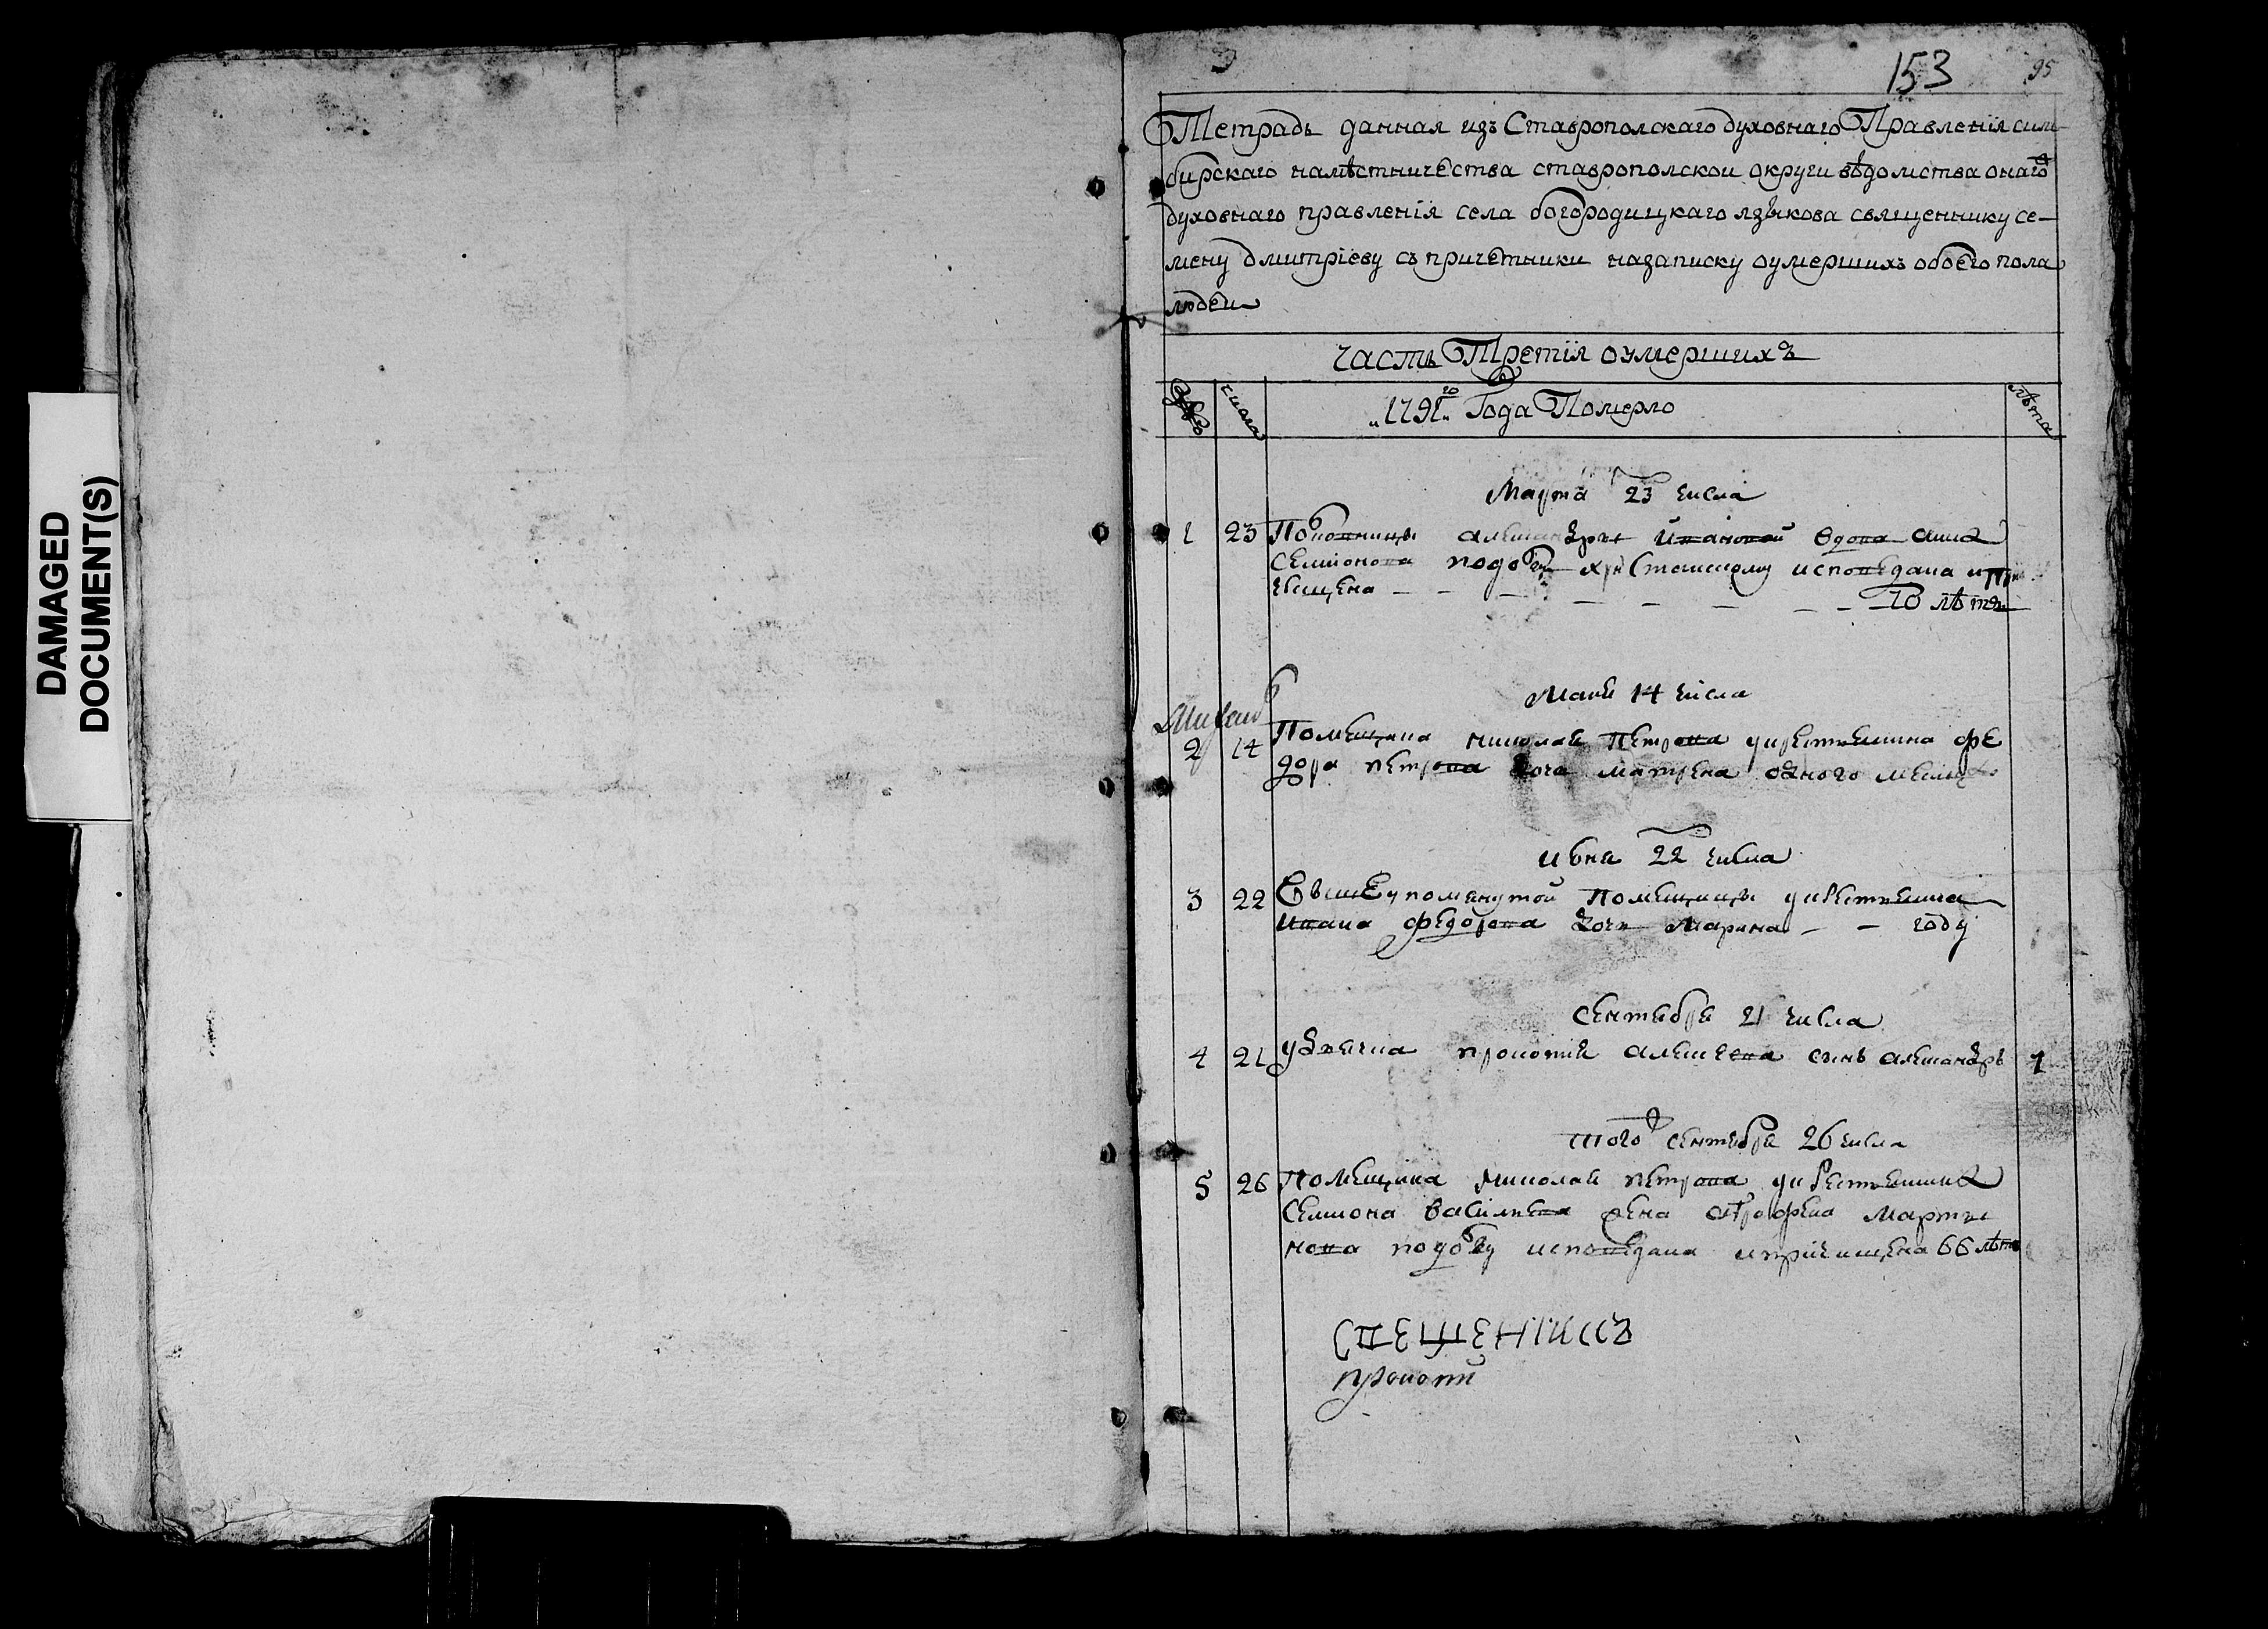 DAMAGED
DOCUMENT(S)
153 95
Тетрадь данная изъ Ставрополскаго духовнаго Правленія сим
бирскаго намѣстничества ставрополскои округи вѣдомства онаго
духовнаго правленія села богородицкаго языкова священнику се-
мену дмитріеву съ причетники назаписку оумершихъ обоего пола
людеи
часть Третія оумершихъ
числа 1791го Года Померло лѣта
Марта 23 числа
1 23 алеѯандры Ивановой вдова анна
Семіонова исповедана и при
чащена 70 лѣтъ
Маия 14 числа
2 14 Помещика николая Петрова крестьянина фе
дора петрова дочь матрена одного месяца
июня 22 числа
3 22 Вышеупоменутой Помещицы крестьянина
ивана федорова дочь Марина году
Сентября 21 числа
4 21 удьячка прокопия алеѯеева сынъ алеѯандръ 1
того Сентября 26 числа
5 26 Помещика николая петрова крестьянина
Семиона васильева жена Марты
нова исповедана и причащена 66 лѣтъ